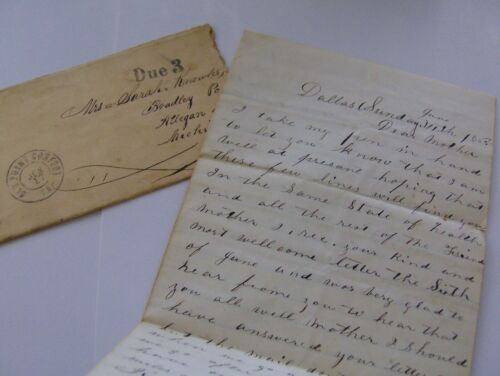 Due 3
Mrs Sarah Knowles
Bradley
Allegan
Mich
June
Dallas Sunday 11th
Dear Mother
I take my pen in hand
to let you know that I am
well at presant hoping that
these few lines will find you
In the Same State of health
and all the rest of the friend
mother I, rec, your Kind and
most wellcome letter the Sixth
of June and was very glad to
hear frome you to hear that
you all well Mother I Should
have answered your letter
but the mail